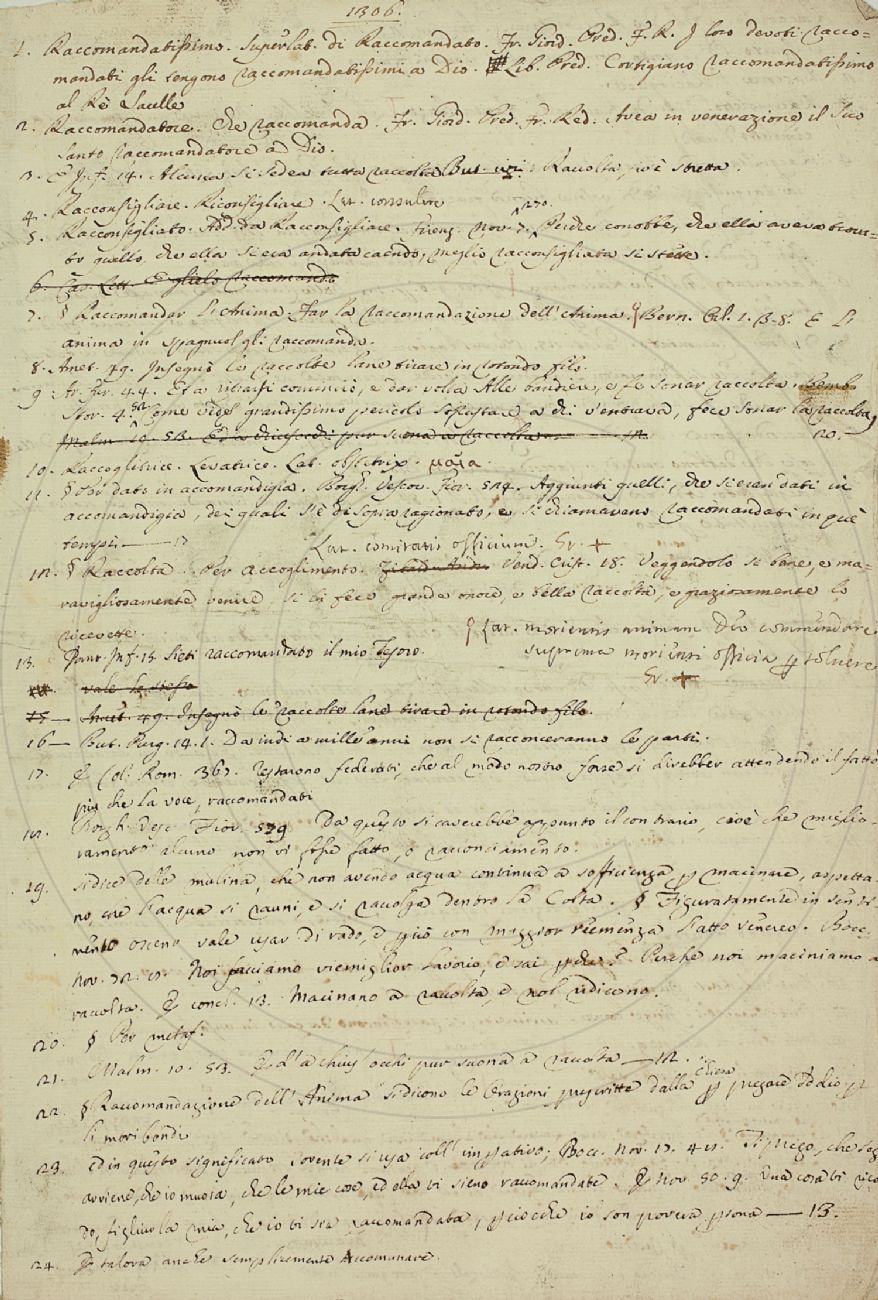 1306.
1. Raccomandatissimo. Superlat. di Raccomandato. Fr. Giord. Pred. F. R. I loro devoti racco=
mandati gli tengono raccomandatissimi a Dio. Lib. Pred. Cortigiano raccomandatissimo
al Rè Saulle
2. Raccomandatore. Che raccomanda. Fr. Giord. Pred. Fr. Red. Avea in venerazione il suo
santo raccomandatore a Dio.
3. E Inf. 14. Alcuna si sedea tutta raccolta But. ivi: Raccolta, cioè stretta.
4. Racconsigliare. Riconsigliare. Lat. consulere
5. Racconsigliato. Add. da Racconsigliare. Franc. Nov. 270. Perchè conobbe, che ella aveva trova=
to quello che ella si era andata caendo, meglio racconsigliata si stette.
6. Car. Lett. E glielo raccomando
7. § Raccomandar l'Anima. Far la raccomandazione dell'Anima. Bern. Orl. 1. 13. 8. E l'
anima in spagnuol gli raccomanda.
8. Amet. 49. Insegnò le raccolte lane tirare in ritondo filo.
9 Ar. Fur. 44. Et a ritrarsi cominciò, e dar volta Alle bandiere, e fe sonar raccolta. Bemb.
Stor. 4. Come vide grandissimo pericolo soprastare a chi v'entrava, fece sonar la raccolta,
Malm. 10. 53. E a chius'occhi pur suona a raccolta — 12. 20. —
10. Raccoglitrice. Levatrice. Lat. obstetrix. μαῖα.
11. § Per dato in accomandigia. Borgh. Vescov. Fior. 524. Aggiunti quelli, che si eran dati in
accomandigia, dei quali si è di sopra ragionato, e si chiamavano raccomandati in que'
tempi — 17 Lat. comitatis officium. Gr. +
12. § Raccolta. Per Accoglimento. Vend. Crist. 18. Veggendolo sì bene, e ma=
ravigliosamente venire, si li fece grande onore, e bella raccolta, e graziosamente lo
ricevette. Lat. morientis animam Deo commendare
13. Dant. Inf. 15 Sieti raccomandato il mio Tesoro. suprema morienti officia p solvere
Gr. +
vale lo stesso
15 — Amet. 49. Insegnò le raccolte lane tirare in ritondo filo.
16 — But. Purg. 14. 1. Da indi a mille anni non si racconceranno le parti.
17. E Col. Rom. 367. restarono federati, che al modo nostro forse si direbber attendendo il fatto
più che la voce, raccomandati
18. Borgh. Vesc. Fior. 579. Da questo si caverebbe appunto il contrario, cioè che miglio=
ramento alcuno non vi fosse fatto, o racconciamento.
19. si dice delle mulina, che non avendo acqua continua a sofficienza p macinare, aspetta=
no, che l'acqua si rauni, e si raccolga dentro la Colta. § Figuratamente in senti=
mento osceno vale usar di rado, e più con maggior veemenza l'atto venereo. Bocc.
nov. 32. Noi facciamo vie miglior lavorio, e sai pchè? Perchè noi maciniamo a
raccolta. E concl. 13. Macinano a raccolta, e nol ridicono.
20. § Per metaf.
21. Malm. 10. 53. E d'a chius'occhi pur suona a raccolta — 12.
22. § Raccomandazione dell'Anima si dicono le Orazioni prescritte dalla Chiesa p pregare Iddio p
li moribondi
23. ed in questo significato sovente si usa coll'imperativo; Bocc. Nov. 17. 42. Ti prego, che s'egli
avviene, che io muoia, che le mie cose, ed ella ti sieno raccomandate. E Nov. 50. 9. Una cosa ti rico
do, figliuola mia, che io ti sia raccomandata, pciocchè io son povera psona — 13.
24. E talora anche semplicemente Accomunare.